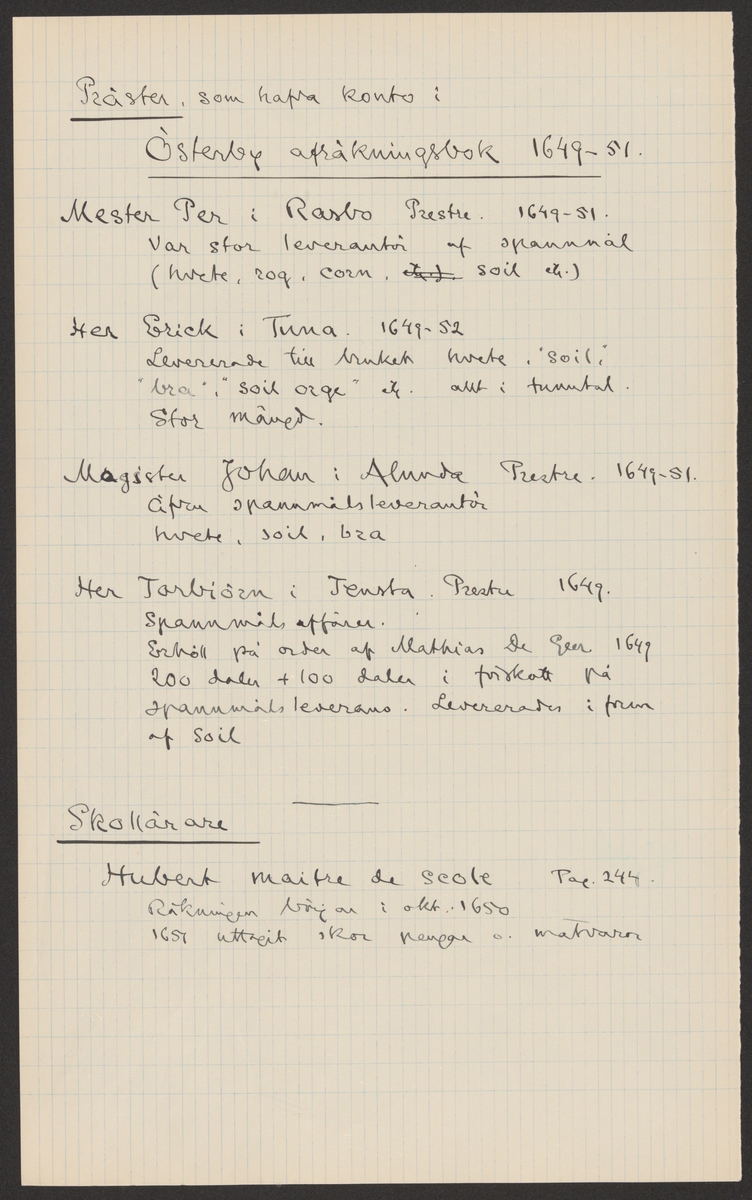 Präster, som hafva konto i
Österby afräkningsbok 1649-51.
Mester Per i Rasbo Prestre. 1649-51.
Var stor leverantör af spannmål
(hvete, rog, corn, etc.). soil etc.)
Her Erick i Tuna. 1649-52
Levererade till bruket hvete, "soil",
"bra", "soil orge" etc. allt i tunntal.
Stor mängd.
Magister Johan i Alunda Prestre. 1649-51.
äfven spannmålsleverantör
hvete, soil, bra
Her Torbiörn i Tensta. Prestre 1649.
Spannmåls affärer.
Erhöll på order af Mathias De Geer 1649
200 daler + 100 daler i förskott på
spannmålsleverans. Levererades i form
af soil
Skollärare
Hubert maitre de scole Pag. 244.
Räkningen börjar i okt. 1650
1651 uttagit skor pengar o. matvaror